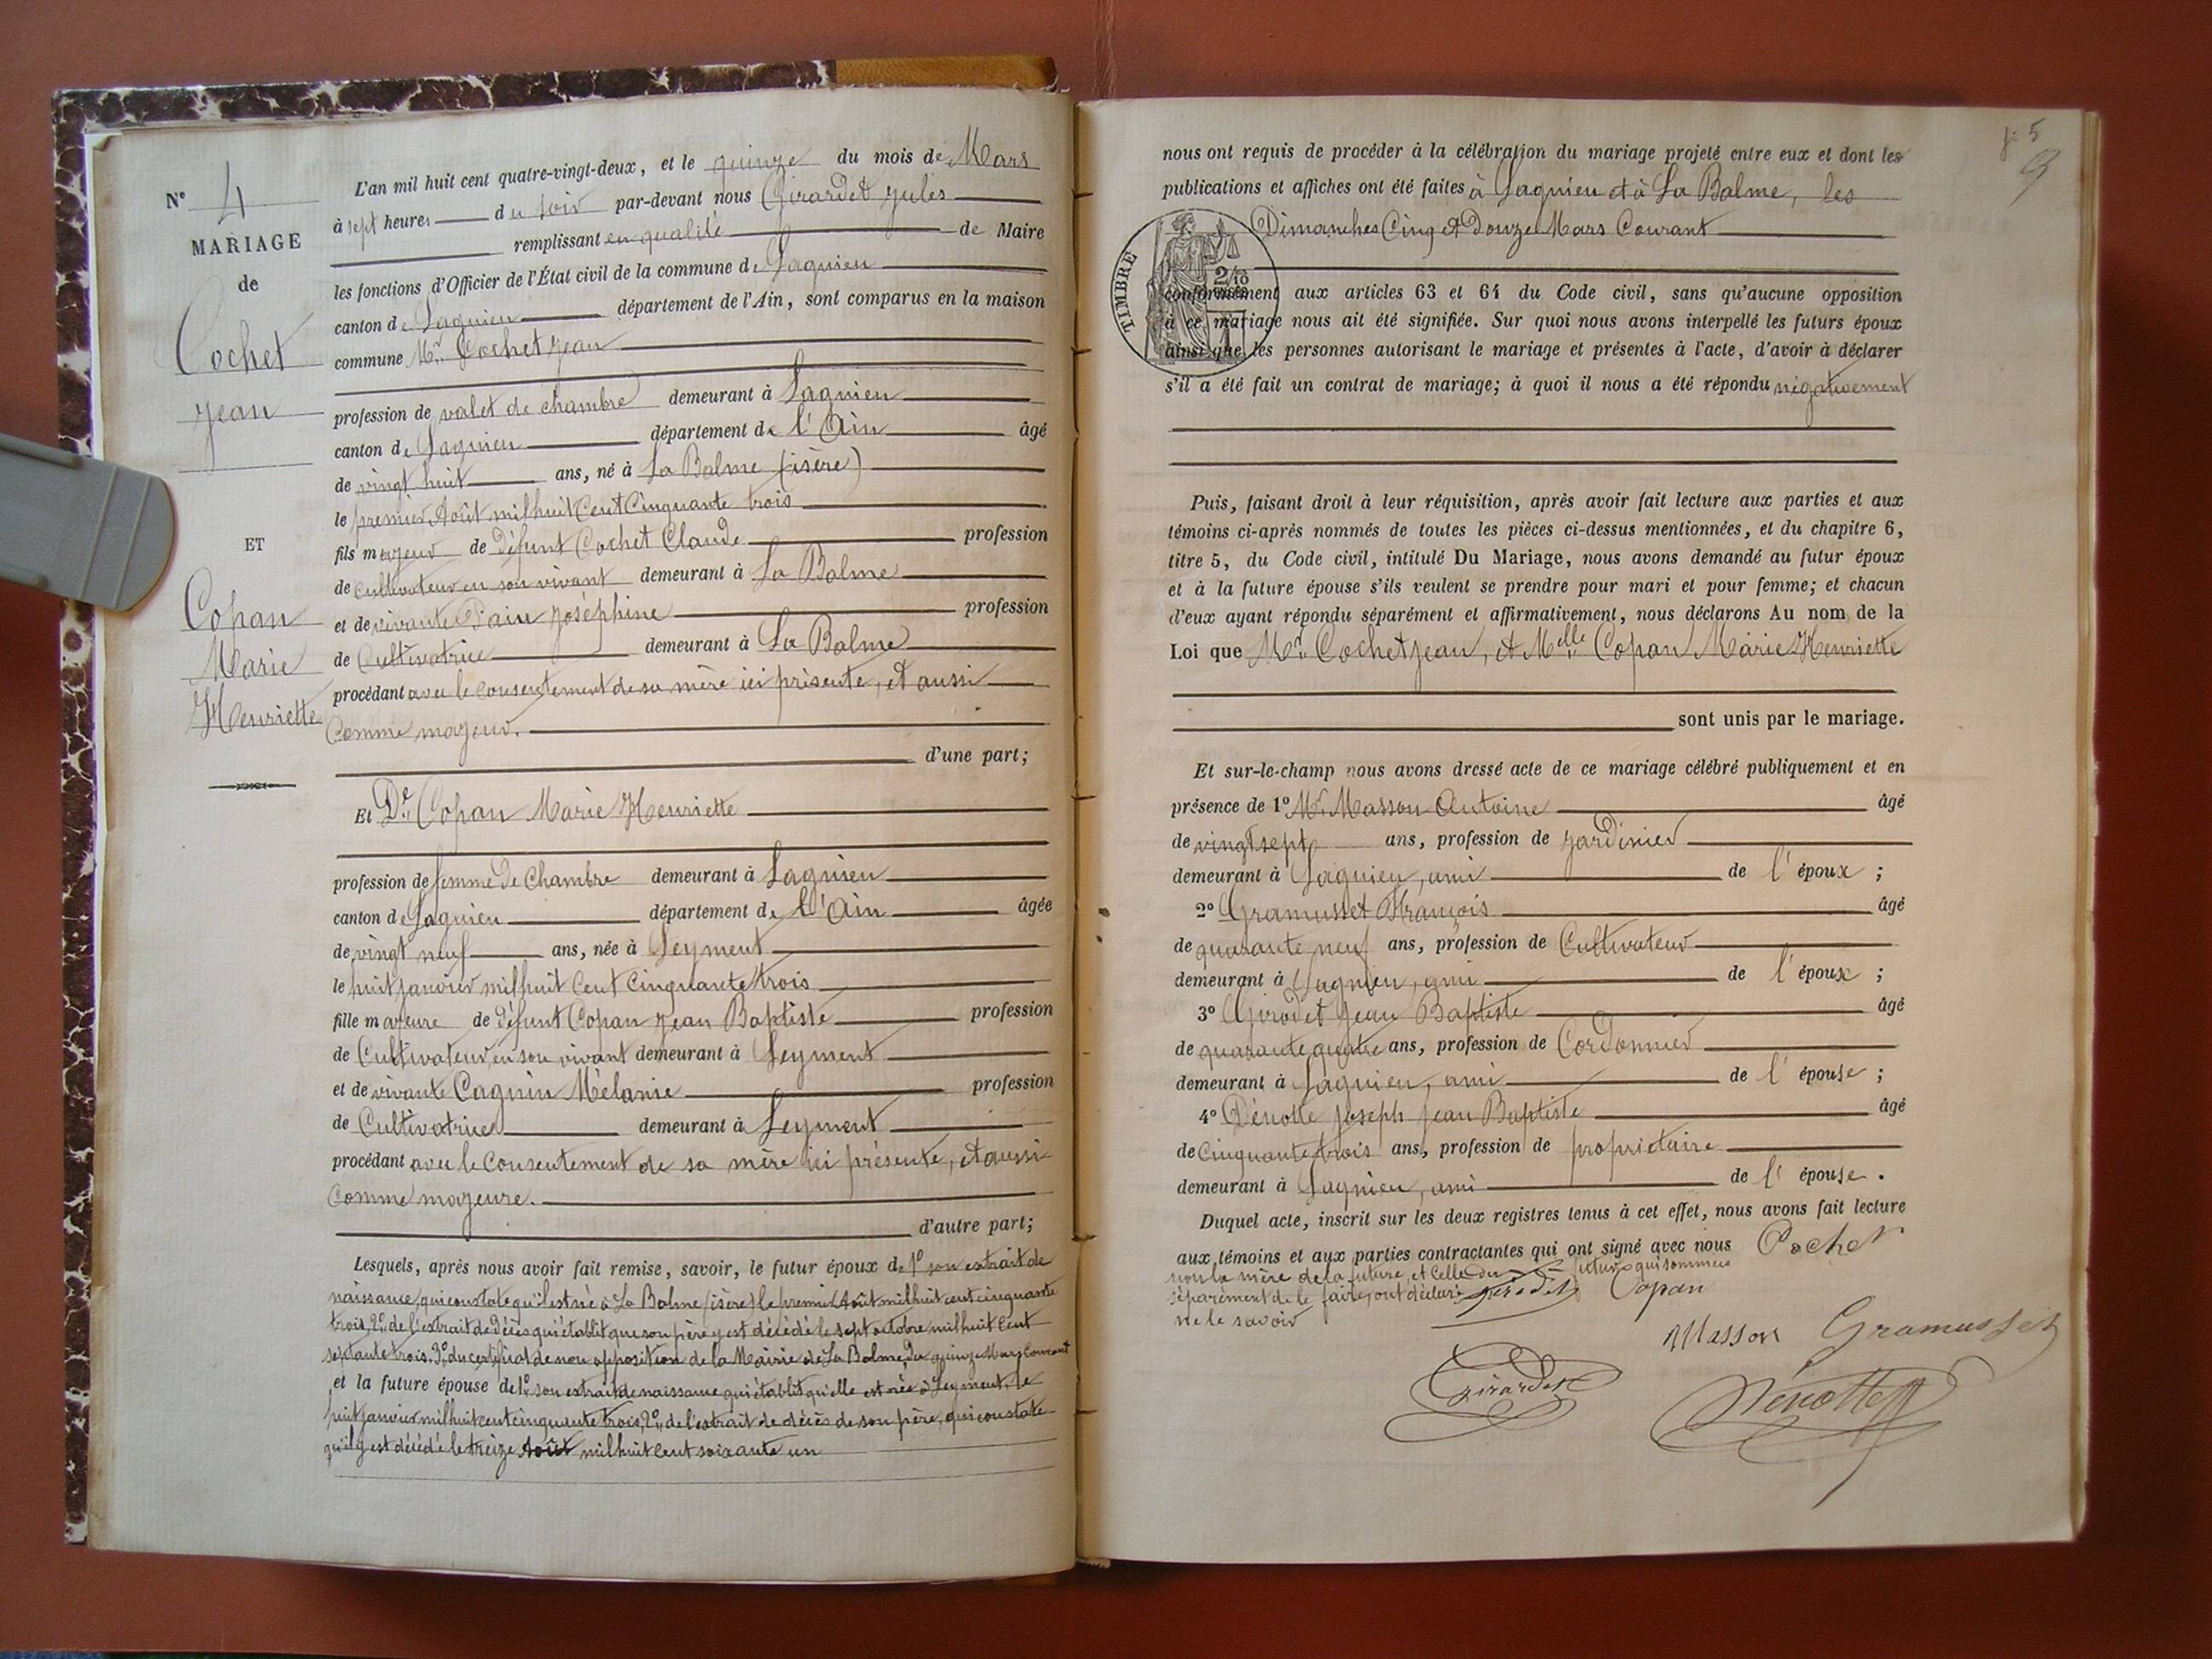 N° 4
MARIAGE
de
Cochet
Jean
ET
Copan
Marie
Henriette
L'an mil huit cent quatre-vingt-deux, et le quinze du mois de Mars
à sept heures du soir par-devant nous Girardet Jules
remplissant en qualité de Maire
les fonctions d'Officier de l'État civil de la commune de Lagnieu
canton de Lagnieu département de l'Ain, sont comparus en la maison
commune Mr. Cochet Jean
profession de valet de chambre demeurant à Lagnieu
canton de Lagnieu département de l'Ain âgé
de vingt huit ans, né à La Balme (isère)
le premier Août mil huit Cent Cinquante trois
fils majeur de défunt Cochet Claude profession
de cultivateur en son vivant demeurant à La Balme
et de vivante Joséphine profession
de Cultivatrice demeurant à La Balme
procédant avec le consentement de sa mère ici présente, et aussi
Comme majeur.
d'une part;
Et Dlle Copan Marie Henriette
profession de femme de Chambre demeurant à Lagnieu
canton de Lagnieu département de l'Ain âgée
de vingt neuf ans, née à Leyment
le huit janvier mil huit Cent Cinquante trois
fille majeure de défunt Copan Jean Baptiste profession
de Cultivateur, en son vivant demeurant à Leyment
et de vivante Cagnin Mélanie profession
de Cultivatrice demeurant à Leyment
procédant avec le Consentement de sa mère ici présente, et aussi
Comme majeure.
d'autre part;
Lesquels, après nous avoir fait remise, savoir, le futur époux de 1° son extrait de
naissance, qui constate qu'il est né à La Balme (isère) le premier Août mil huit cent cinquante
trois, 2° de l'extrait de décès qui établit que son père y est décédé le sept octobre mil huit Cent
septante trois. 3° du certificat de non opposition de la Mairie de La Balme, du quinze Mars Courant
et la future épouse de 1° son extrait de naissance qui établit qu'elle est née à Leyment, le
huit janvier mil huit cent cinquante trois, 2° de l'extrait de décès de son père, qui constate
qu'il y est décédé le treize Août mil huit Cent soixante un
fo 5
9
nous ont requis de procéder à la célébration du mariage projeté entre eux et dont les
publications et affiches ont été faites à Lagnieu et à La Balme, les
Dimanches Cinq et Douze Mars Courant
TIMBRE
2/10
conformément aux articles 63 et 64 du Code civil, sans qu'aucune opposition
à ce mariage nous ait été signifiée. Sur quoi nous avons interpellé les futurs époux
ainsi que les personnes autorisant le mariage et présentes à l'acte, d'avoir à déclarer
s'il a été fait un contrat de mariage; à quoi il nous a été répondu négativement
Puis, faisant droit à leur réquisition, après avoir fait lecture aux parties et aux
témoins ci-après nommés de toutes les pièces ci-dessus mentionnées, et du chapitre 6,
titre 5, du Code civil, intitulé Du Mariage, nous avons demandé au futur époux
et à la future épouse s'ils veulent se prendre pour mari et pour femme; et chacun
d'eux ayant répondu séparément et affirmativement, nous déclarons Au nom de la
Loi que Mr. Cochet Jean, et Melle Copan Marie Henriette
sont unis par le mariage.
Et sur-le-champ nous avons dressé acte de ce mariage célébré publiquement et en
présence de 1° Mr. Masson Antoine âgé
de vingt sept ans, profession de jardinier
demeurant à Lagnieu, ami de l'époux ;
2° Gramusset François âgé
de quarante neuf ans, profession de Cultivateur
demeurant à Lagnieu, ami de l'époux ;
3° Girodet Jean Baptiste âgé
de quarante quatre ans, profession de Cordonnier
demeurant à Lagnieu, ami de l'épouse ;
4° Dénotte Joseph Jean Baptiste âgé
de Cinquante trois ans, profession de propriétaire
demeurant à Lagnieu, ami de l'épouse.
Duquel acte, inscrit sur les deux registres tenus à cet effet, nous avons fait lecture
aux témoins et aux parties contractantes qui ont signé avec nous Cochet
non la mère de la future, et Celle du futur qui sommées
séparément de le faire, ont déclaré Girodet Copan
ne le savoir
Masson Gramusset
Girardet Dénotte